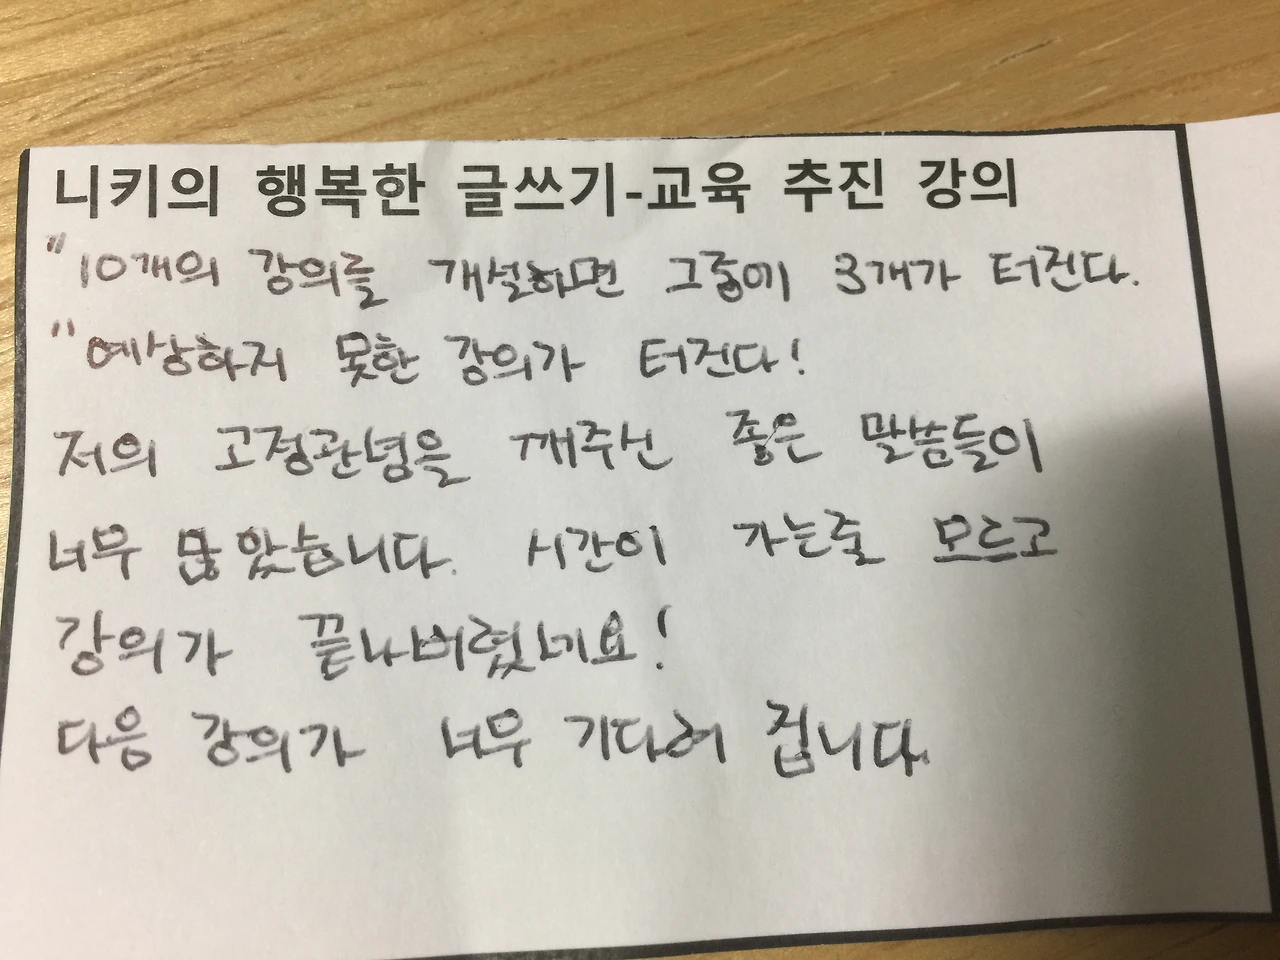 니키의 행복한 글쓰기-교육 추진 강의
"10개의 강의를 개설하면 그중에 3개가 터진다.
"예상하지 못한 강의가 터진다!
저의 고정관념을 깨주신 좋은 말씀들이
너무 많았습니다. 시간이 가는줄 모르고
강의가 끝나버렸네요!
다음 강의가 너무 기다려 집니다.